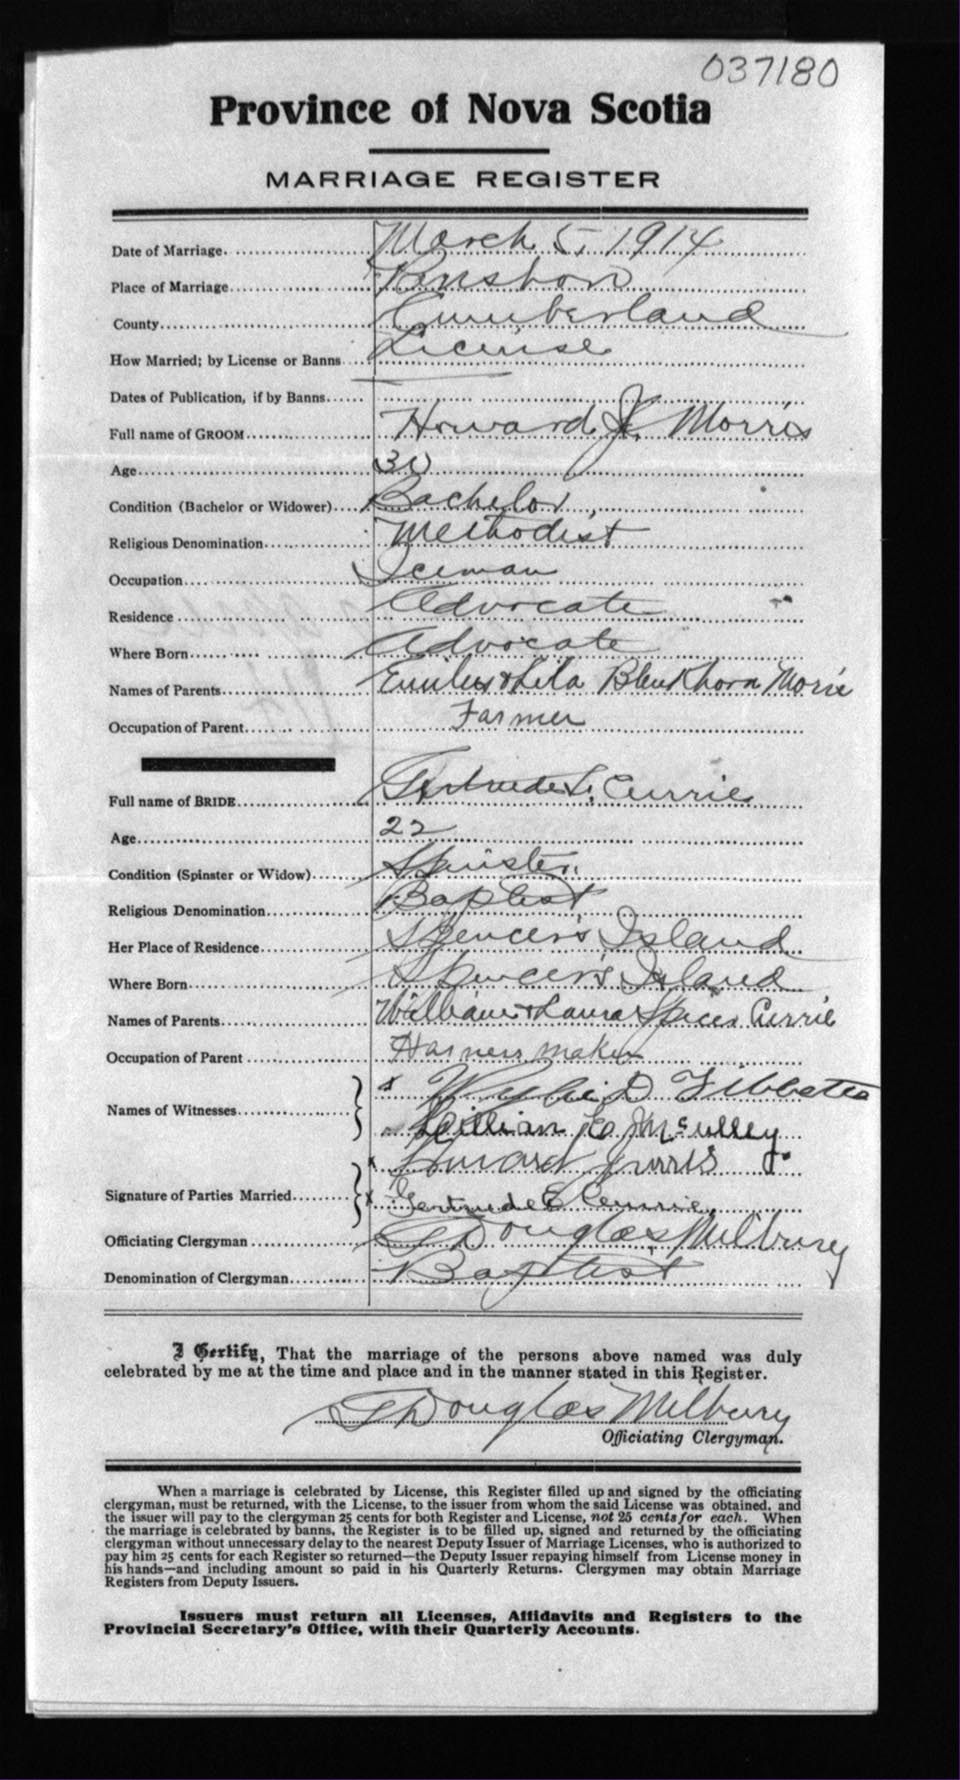 037180
Province of Nova Scotia
MARRIAGE REGISTER
Date of Marriage. March 5, 1914
Place of Marriage
County Cumberland
How Married; by License or Banns License
Dates of Publication, if by Banns
Full name of GROOM Howard J. Morris
Age 30
Condition (Bachelor or Widower) Bachelor
Religious Denomination Methodist
Occupation Iceman
Residence Advocate
Where Born Advocate
Names of Parents & Lila Blenkhorn Morris
Occupation of Parent Farmer
Full name of BRIDE Gertrude Currie
Age 22
Condition (Spinster or Widow) Spinster
Religious Denomination Baptist
Her Place of Residence Spencer's Island
Where Born Spencer's Island
Names of Parents William & Laura Spicer Currie
Occupation of Parent Harness maker
Names of Witnesses D Tibbetts
Lillian E. McCulley
Howard J Morris
Signature of Parties Married Gertrude E Currie
Officiating Clergyman Douglas Milbury
Denomination of Clergyman Baptist
I Certify, That the marriage of the persons above named was duly
celebrated by me at the time and place and in the manner stated in this Register.
Douglas Milbury
Officiating Clergyman.
When a marriage is celebrated by License, this Register filled up and signed by the officiating
clergyman, must be returned, with the License, to the issuer from whom the said License was obtained, and
the issuer will pay to the clergyman 25 cents for both Register and License, not 25 cents for each. When
the marriage is celebrated by banns, the Register is to be filled up, signed and returned by the officiating
clergyman without unnecessary delay to the nearest Deputy Issuer of Marriage Licenses, who is authorized to
pay him 25 cents for each Register so returned—the Deputy Issuer repaying himself from License money in
his hands—and including amount so paid in his Quarterly Returns. Clergymen may obtain Marriage
Registers from Deputy Issuers.
Issuers must return all Licenses, Affidavits and Registers to the
Provincial Secretary's Office, with their Quarterly Accounts.